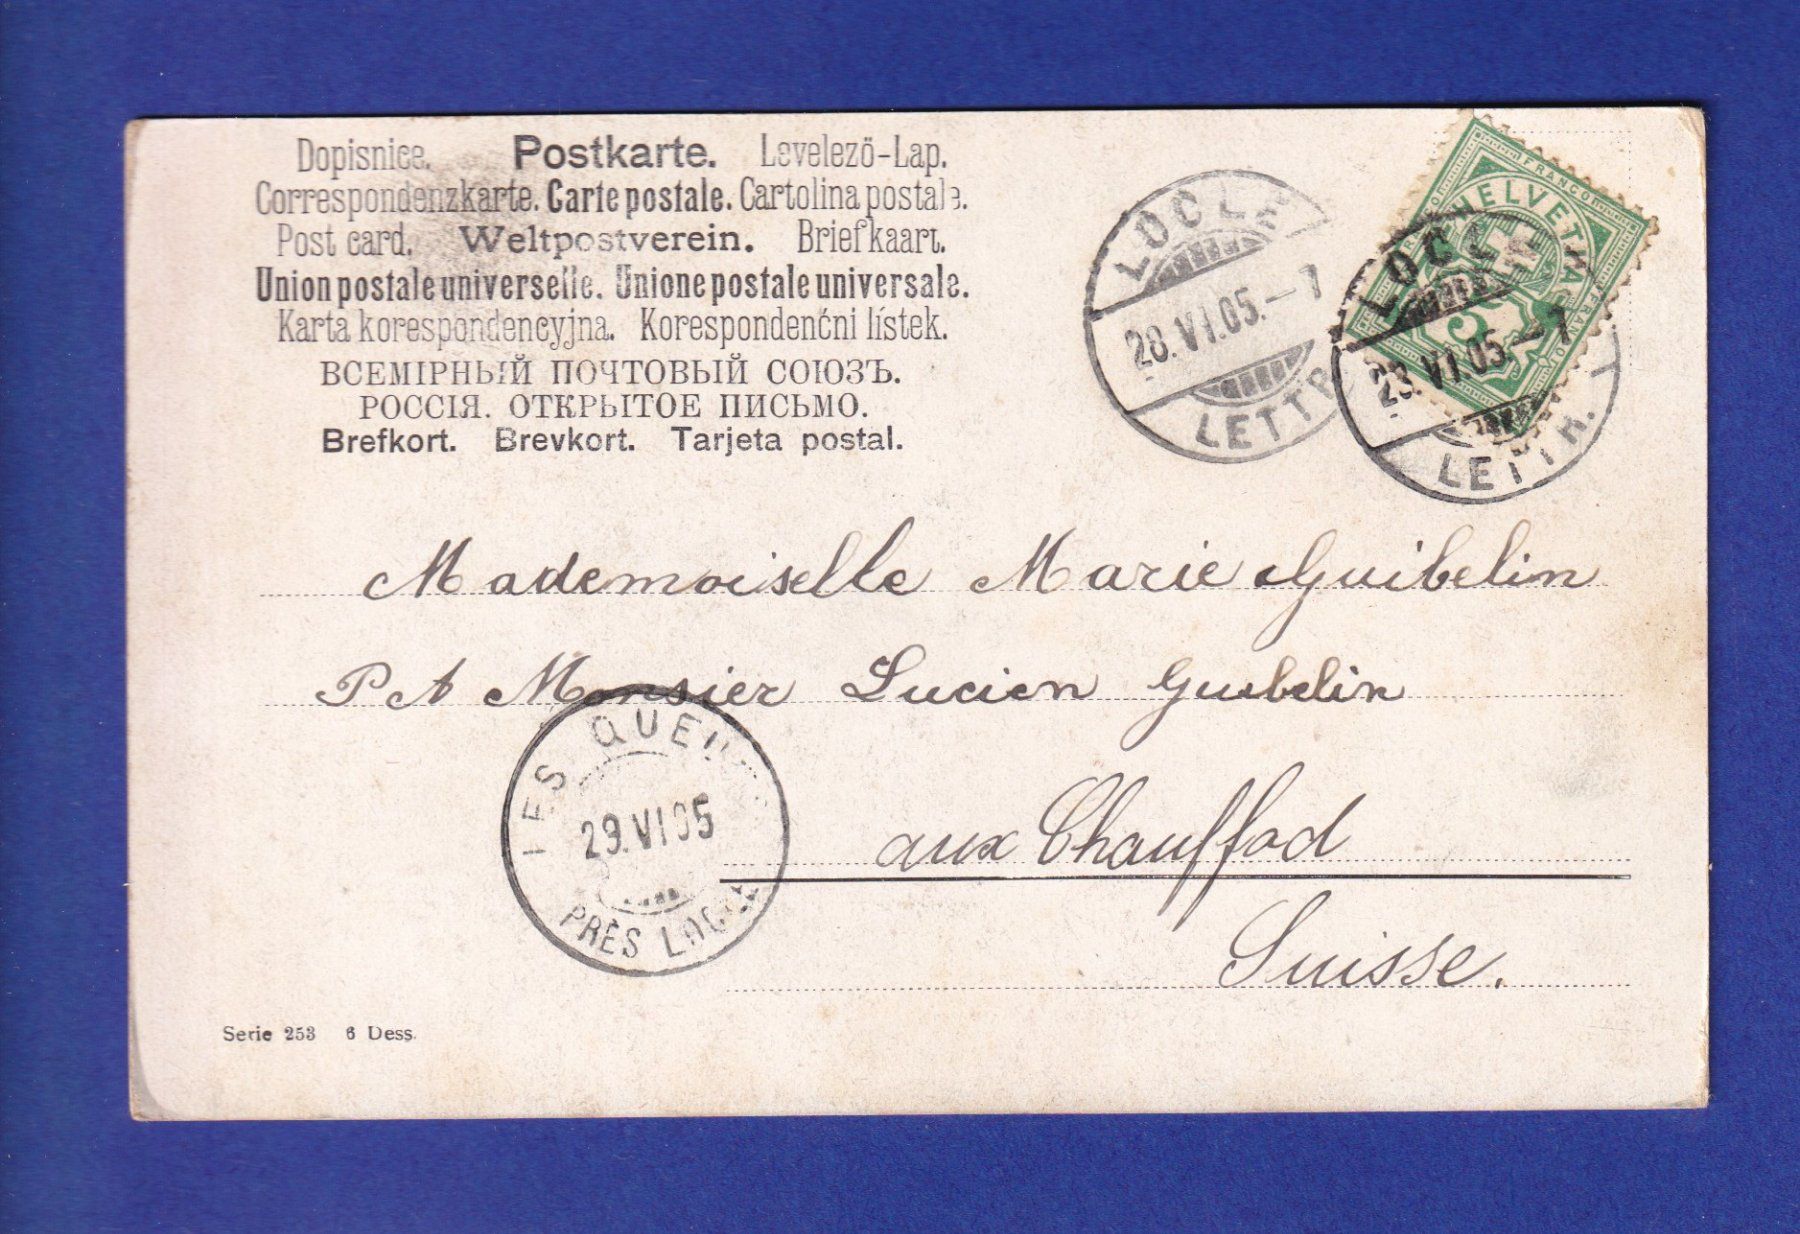 Dopisnice. Postkarte. Levelező-Lap.
Correspondenzkarte. Carte postale. Cartolina postale.
Post card. Weltpostverein. Briefkaart.
Union postale universelle. Unione postale universale.
Karta korespondencyjna. Korespondenčni lístek.
ВСЕМІРНЫЙ ПОЧТОВЫЙ СОЮЗЪ.
РОССІЯ. ОТКРЫТОЕ ПИСЬМО.
Brefkort. Brevkort. Tarjeta postal.
LOCLE
28.VI.05.–1
LETTR
FRANCO HELVETIA FRANCO
5
LOCLE
28.VI.05.–1
LETTR.
Mademoiselle Marie Guibelin
P A Monsier Lucien Guibelin
aux Chauffod
Suisse.
LES
29.VI 05
PRÈS LOCLE
Serie 253 6 Dess.